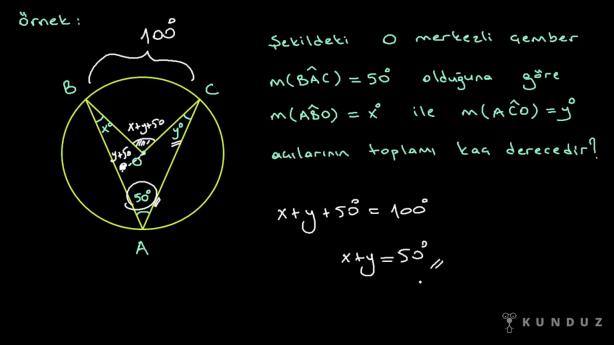 Örnek:
100°
B
C
x+y+50
x°
y°
y+50
O
50°
A
Şekildeki O merkezli çember
m(BÂC) = 50° olduğuna göre
m(AB̂O) = x° ile m(AĈO) = y°
açılarının toplamı kaç derecedir?
x+y+50° = 100°
x+y = 50°
KUNDUZ